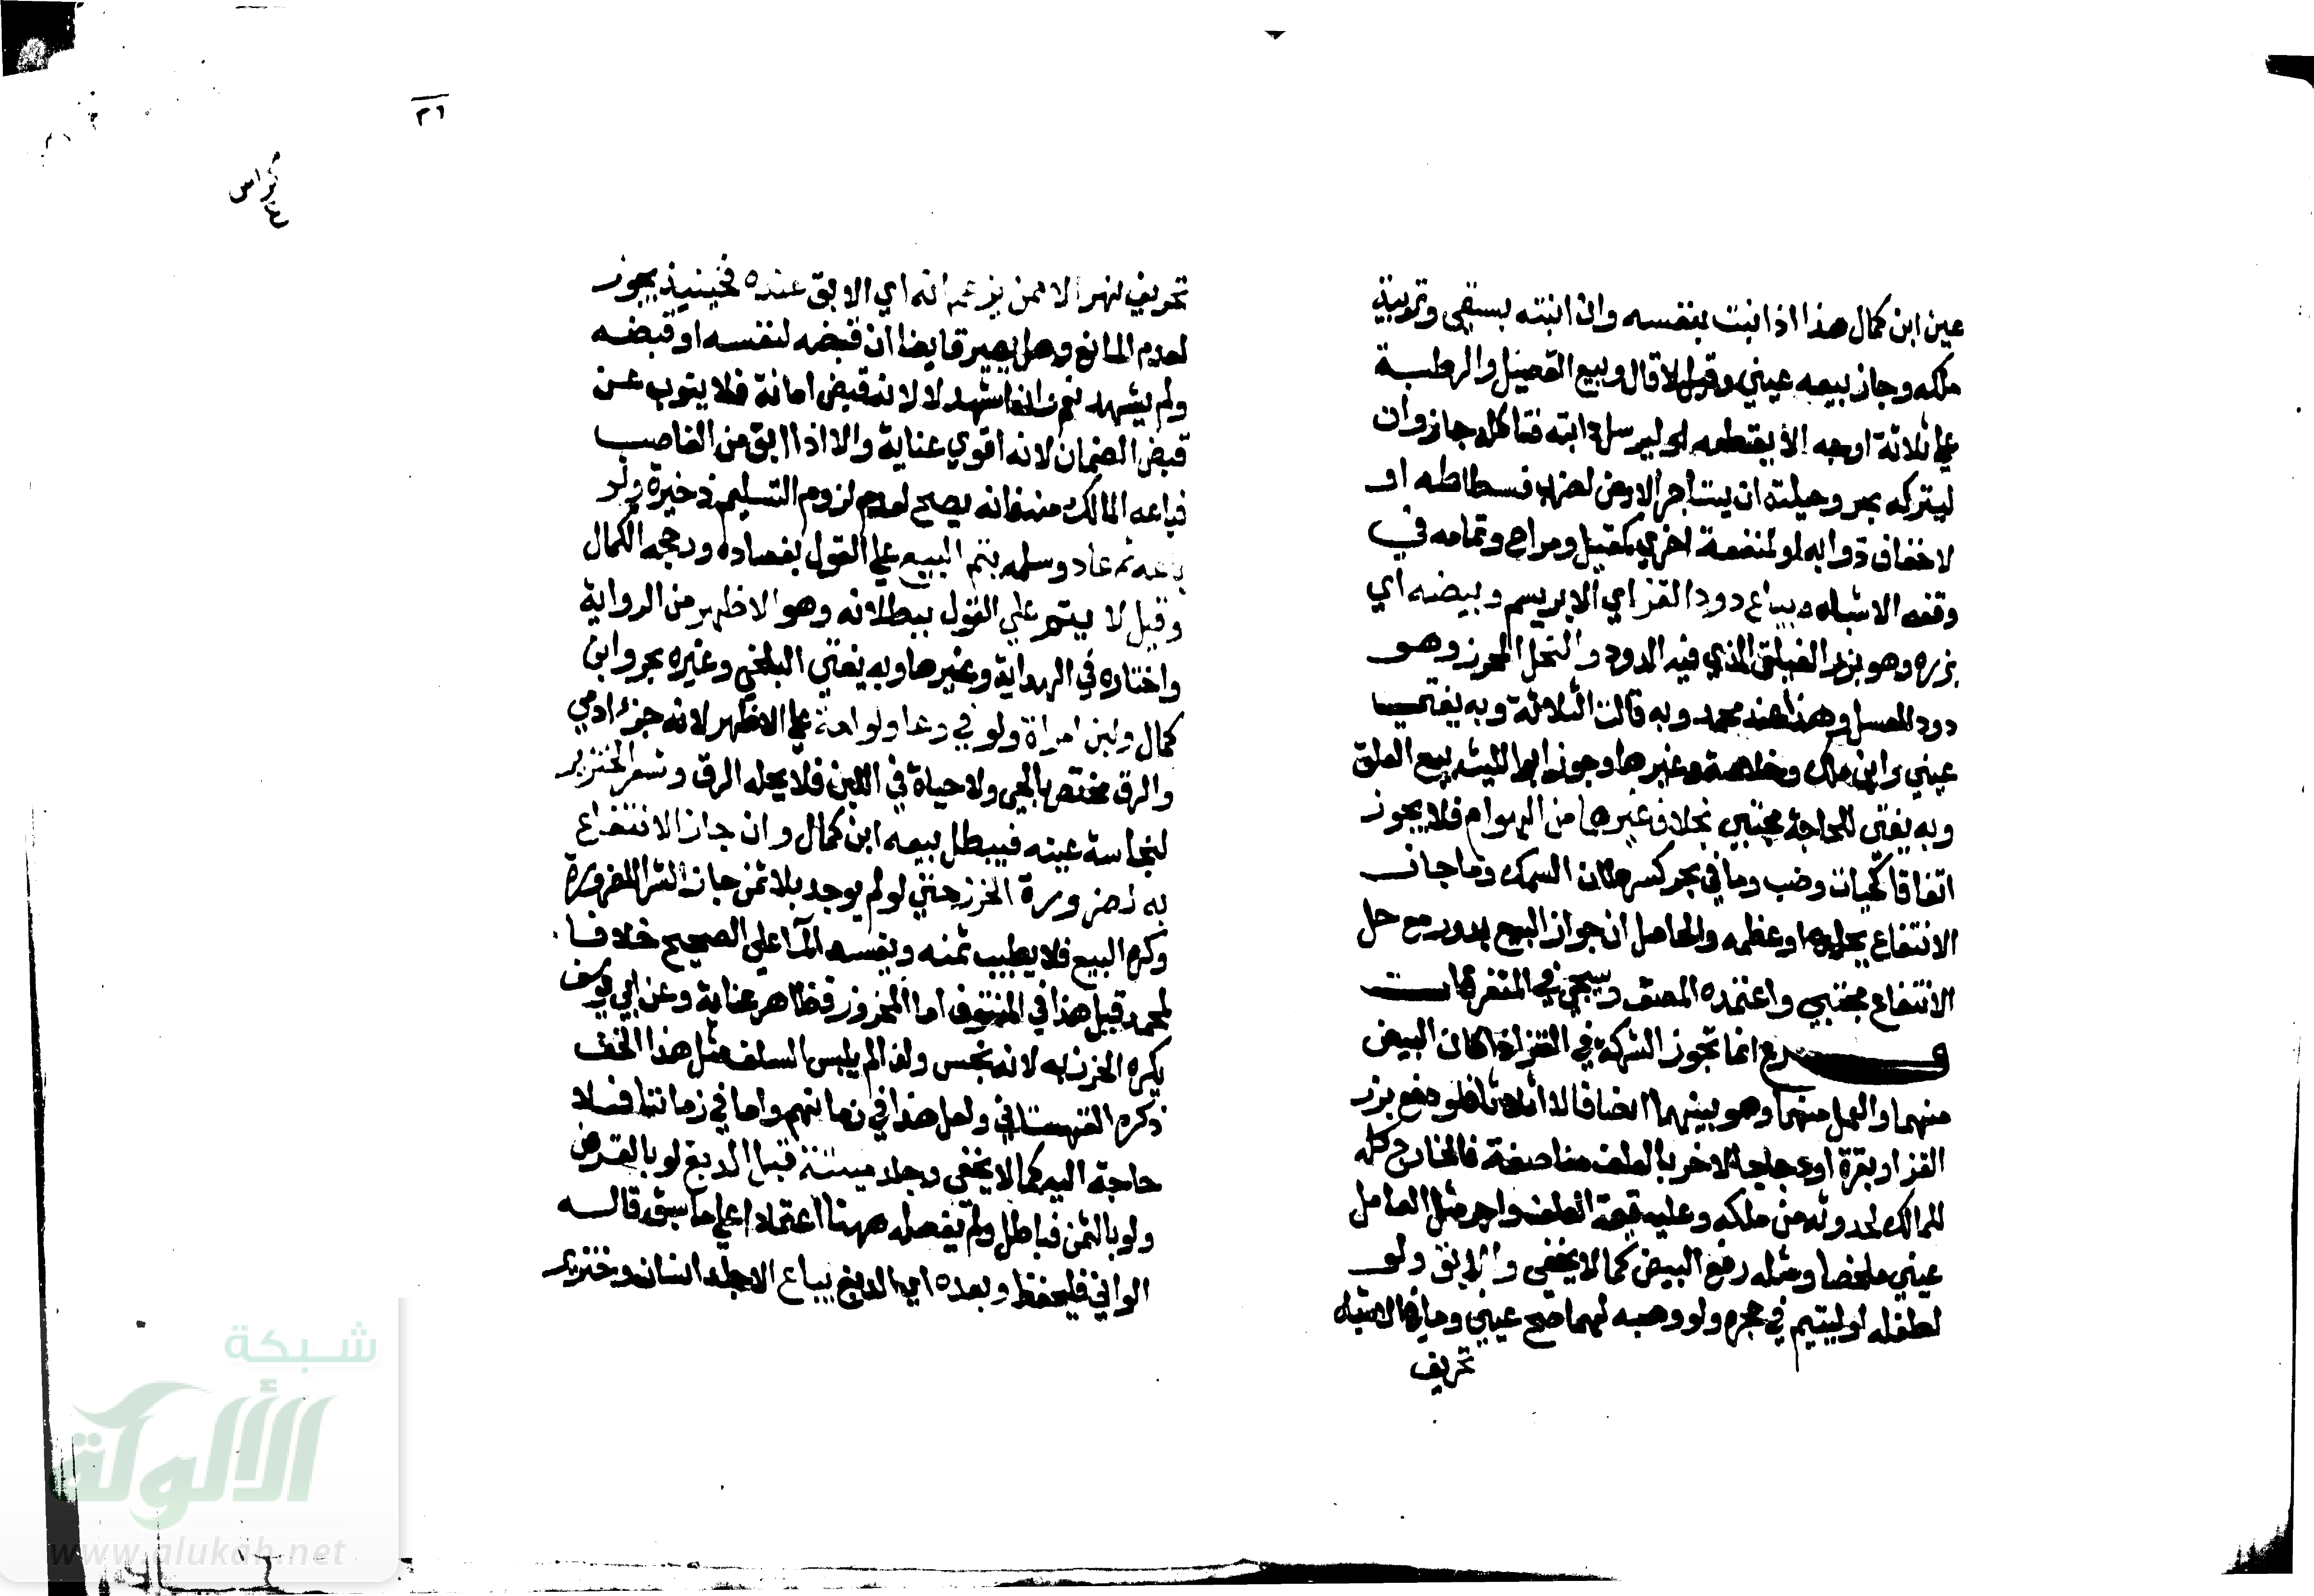 عين ابن كمال هذا اذا نبت بنفسه وان انبته بسقي وتربية
ملكه وجاز بيعه عيني وقيل لا قال وبيع القصيل والرطبة
علي ثلاثة اوجه ان ليقطعه او ليرسل دابته فتاكله جاز وان
ليتركه يجز وحيلته ان يستاجر الارض لضرب فسطاطه او
لايقاف دوابه او لمنفعة اخري كمقيل ومراح وتمامه في
وقف الاشباه ويباع دود القز اي الابريسم وبيضه اي
بزره وهو بزر الفيلق الذي فيه الدود والنحل المحرز وهو
دود العسل وهذا عند محمد وبه قالت الثلاثة وبه يفتي
عيني وابن ملك وخلاصة وغيرها وجوز ابو الليث بيع العلق
وبه يفتي للحاجة مجتبي بخلاف غيرها من الهوام فلا يجوز
اتفاقا كحيات وضب وما في بحر كسرطان السمك وما جاز
الانتفاع بجلده او عظمه والحاصل ان جواز البيع يدور مع حل
الانتفاع مجتبي واعتمده المصنف وسيجي في المتفرقات
فرع انما تجوز الشركة في القز اذا كان البيض
منهما والعمل منهما وهو بينهما انصافا لا اثلاثا فلو دفع بزر
القز او بقرة او دجاجا لاخر بالعلف مناصفة فالخارج كله
للمالك لحدوثه من ملكه وعليه قيمة العلف واجر مثل العامل
عيني ملخصا ومثله دفع البيض كما لا يخفي والابق ولو
لطفله او ليتيم في حجره ولو وهبه لهما صح عيني وما في الاشباه
تحريف
٢٦
كراس
٤
تحريف نهر الا ممن يزعم انه اي الابق عنده فحينيذ يجوز
لعدم المانع وهل يصير قابضا ان قبضه لنفسه او قبضه
ولم يشهد نعم وان اشهد لا لانه قبض امانة فلا ينوب عن
قبض الضمان لانه اقوي عناية والا اذا ابق من الغاصب
فباعه المالك منه فانه يصح لعدم لزوم التسليم ذخيرة ولو
باعه ثم عاد وسلمه يتم البيع علي القول بفساده ورجحه الكمال
وقيل لا يتم علي القول ببطلانه وهو الاظهر من الرواية
واختاره في الهداية وغيرها وبه يفتي البلخي وغيره بحر وابن
كمال ولبن امراة ولو في وعا ولو امة علي الاظهر لانه جزء ادمي
والرق مختص بالحي ولا حياة في اللبن فلا يحله الرق وشعر الخنزير
لنجاسة عينه فيبطل بيعه ابن كمال وان جاز الانتفاع
به لضرورة الخرز حتي لو لم يوجد بلا ثمن جاز الشرا للضرورة
وكره البيع فلا يطيب ثمنه ويفسد الما علي الصحيح خلافا
لمحمد قيل هذا في المنتوف اما المجزوز فطاهر عناية وعن ابي يوسف
يكره الخرز به لانه نجس ولذا لم يلبس السلف مثل هذا الخف
ذكره القهستاني ولعل هذا في زمانهم واما في زماننا فلا
حاجة اليه كما لا يخفي وجلد ميتة قبل الدبغ لو بالعرض
ولو بالثمن فباطل ولم يفصله ههنا اعتمادا علي ما سبق قاله
الواني فليحفظ وبعده اي الدبغ يباع الا جلد انسان وخنزير
شبكة
الألوكة
www.alukah.net